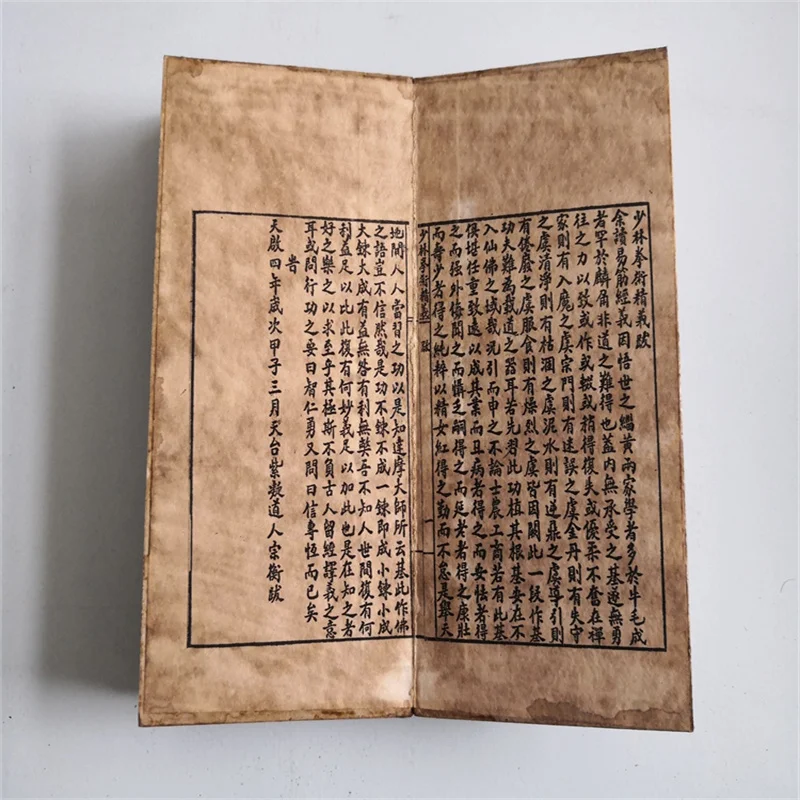 少林拳術精義跋
余讀易筋經義因悟世之緇黃兩家學者多於牛毛成
者罕於麟角非道之難得也蓋內無承受之基遂無勇
往之力以致或作或輟或稍得復失或優柔不奮在禪
家則有入魔之虞宗門則有迷誤之虞金丹則有失守
之虞清淨則有枯涸之虞泥水則有逆鼎之虞導引則
有倦廢之虞服食則有燥烈之虞皆因闕此一段作基
功夫難為載道之器耳若先習此功植其根基要在不
入仙佛之域哉况引而申之不論士農工商若有此基
俱堪任重致遠以成其業而且病者得之而安怯者得
之而强外侮聞之而懼乏嗣得之而延老者得之康壯
而壽少者得之純粹以精女紅得之勤而不怠是舉天
少林拳術精義 跋
地間人人當習之功以是知達摩大師所云基此作佛
之語豈不信然哉是功不鍊不成一鍊即成小鍊小成
大鍊大成有益無咎有利無獘吾不知人世間復有何
利益足以比此復有何妙義足以加此也是在知之者
好之樂之以求至乎其極斯不負古人留經譯義之意
耳或問行功之要曰智仁勇又問曰信專恆而已矣
旹
天啟四年歲次甲子三月天台紫凝道人宗衡跋